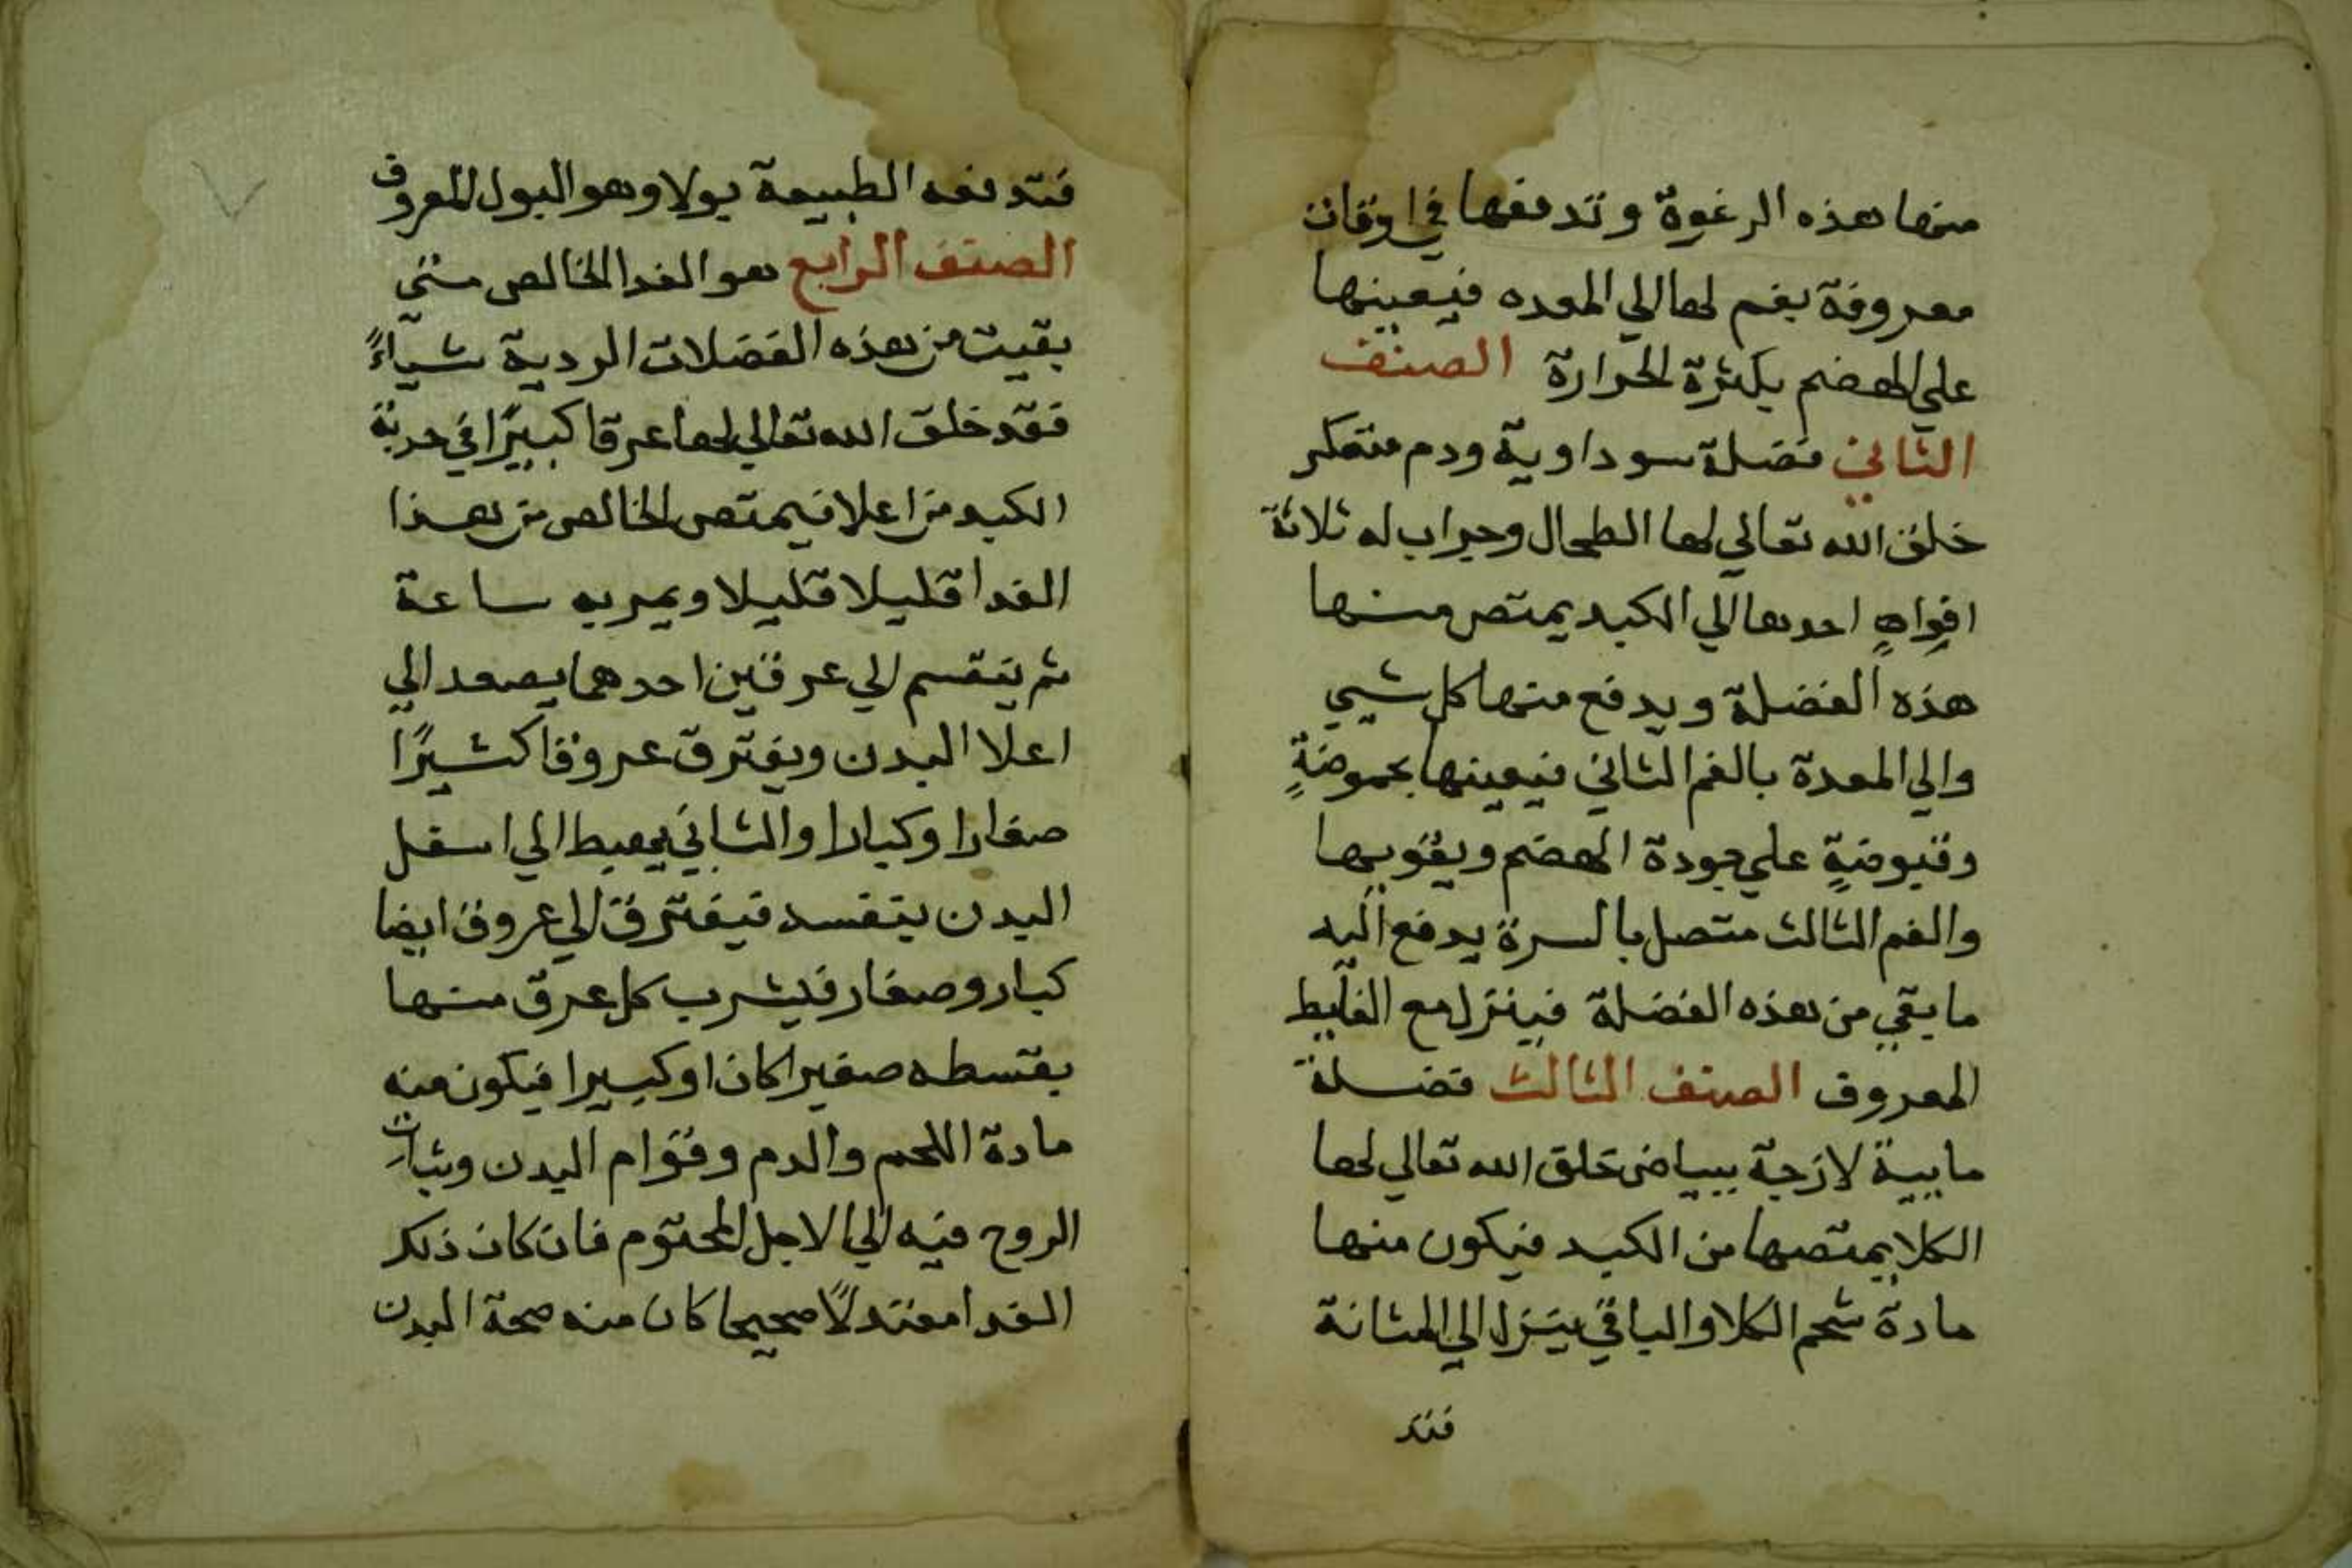 منها هذه الرغوة وتدفعها في اوقات
معروفة بفم لها الي المعده فيعينها
علي الهضم بكثرة الحرارة الصنف
الثاني فضلة سوداوية ودم متعكر
خلق الله تعالي لها الطحال وجراب له ثلاثة
افواهٍ احدها الي الكبد يمتص منها
هذه الفضلة ويدفع منها كل شيي
والي المعدة بالفم الثاني فيعينها بحموضةٍ
وقبوضةٍ علي جودة الهضم ويقويها
والفم الثالث متصل بالسرة يدفع اليه
ما بقي من هذه الفضلة فينزل مع الغايط
المعروف الصنف الثالث فضلة
مايية لازجة ببياض خلق الله تعالي لها
الكلا يمتصها من الكبد فيكون منها
مادة شحم الكلا والباقي ينزل الي المثانة
فتد
فتدفعه الطبيعة بولا وهو البول المعروف
الصنف الرابع هو الغدا الخالص متي
بقيت من هذه الفضلات الردية شياءً
فقد خلق الله تعالي لها عرقا كبيرًا في حدبة
الكبد من اعلا فيمتص الخالص من هذا
الغدا قليلا قليلا ويمر به ساعة
ثم ينقسم الي عرقين احدهما يصعد الي
اعلا البدن ويفترق عروقا كثيرًا
صغارا وكبارا والثاني يهبط الي اسفل
البدن فيفترق الي عروق ايضا
كبار وصغار فيشرب كل عرق منها
بقسطه صغيرا كان او كبيرا فيكون منه
مادة اللحم والدم وقوام البدن وثبات
الروح فيه الي الاجل المحتوم فان كان ذلك
الغدا معتدلًا صحيحا كان منه صحة البدن